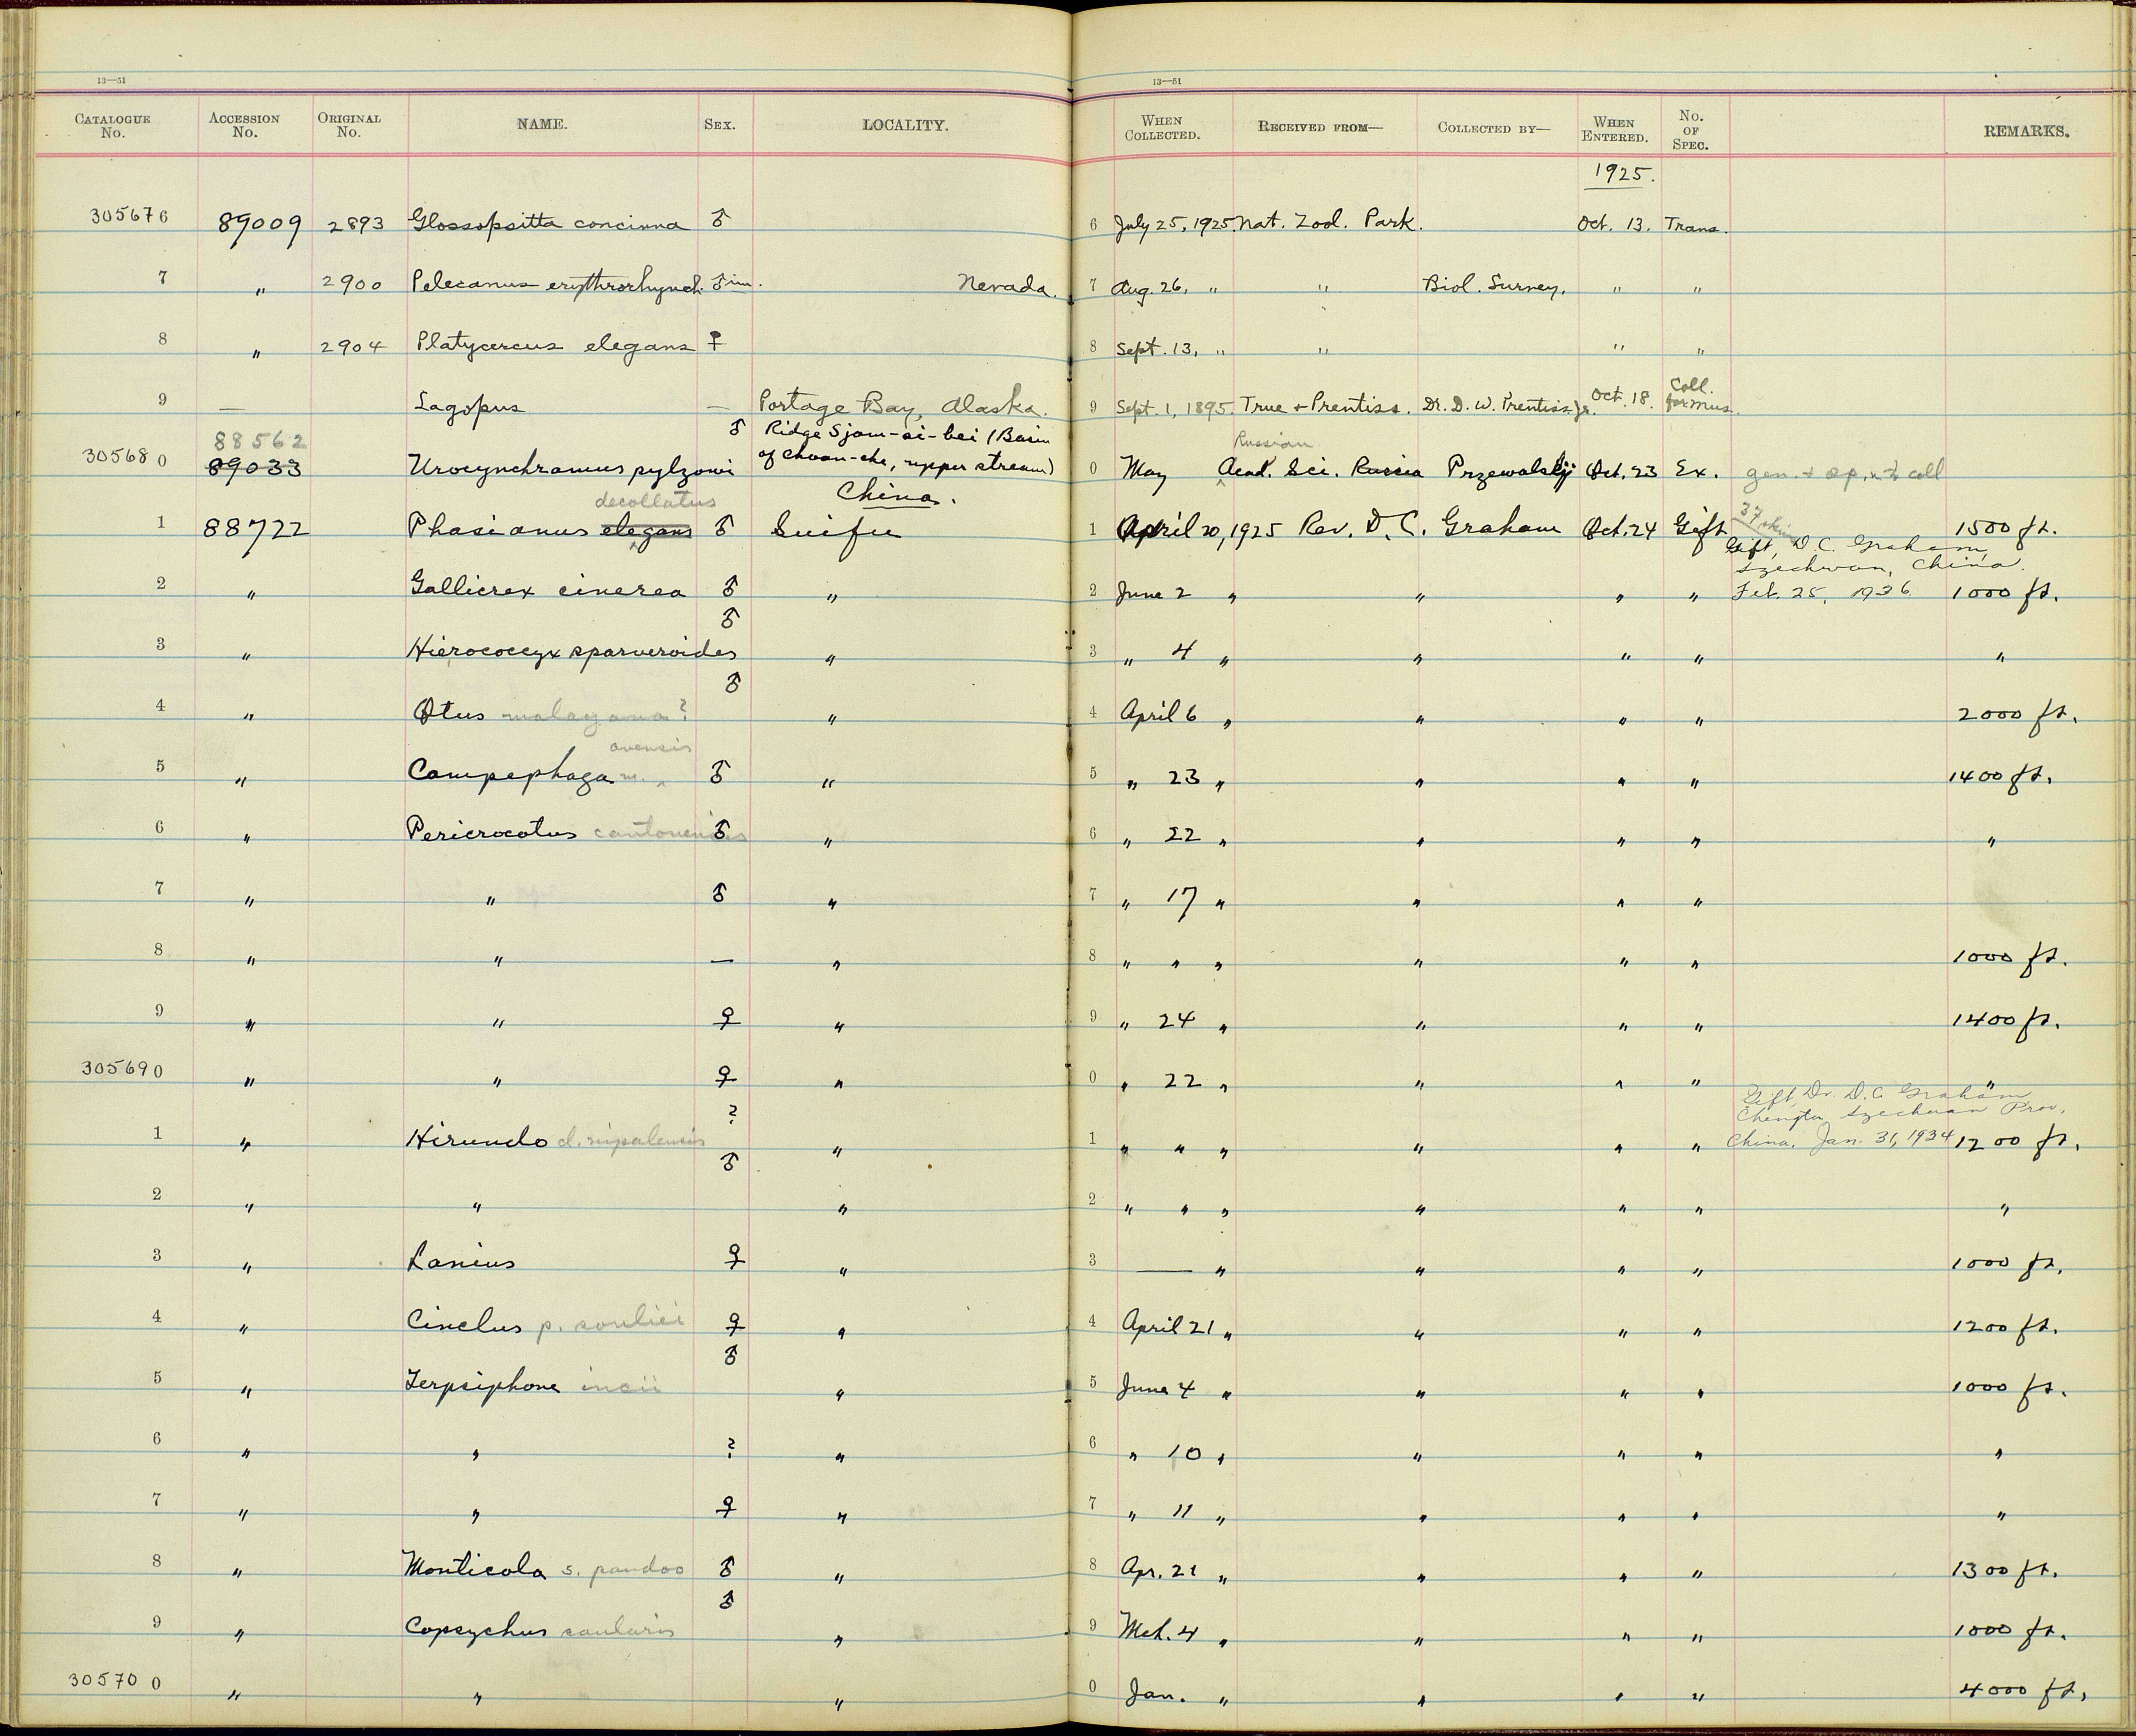 13—51 13—51
CATALOGUE No. ACCESSION No. ORIGINAL No. NAME. SEX. LOCALITY. WHEN COLLECTED. RECEIVED FROM— COLLECTED BY— WHEN ENTERED. No. OF SPEC. REMARKS.
1925.
305676 89009 2893 Glossopsitta concinna ♂ 6 July 25, 1925. Nat. Zool. Park. Oct. 13. Trans.
7 " 2900 Pelecanus erythrorhynch. ♂ im. Nevada. 7 Aug. 26, " " Biol. Survey. " "
8 " 2904 Platycercus elegans ♀ 8 Sept. 13, " " " "
9 — Lagopus — Portage Bay, Alaska. 9 Sept. 1, 1895. True + Prentiss. Dr. D. W. Prentiss Jr. Oct. 18. Coll. for Mus.
88562 ♂ Ridge Sjam-si-bei (Basin Russian
305680 89033 Urocynchramus pylzowi of Chuan-che, upper stream) 0 May Acad. Sci. Russia Przewalskij Oct. 23 Ex. gen. + sp. n. to coll
decollatus China.
1 88722 Phasianus elegans ♂ Suifu 1 April 20, 1925 Rev. D. C. Graham Oct. 24 Gift 37 skins 1500 ft.
Gift, D. C. Graham,
Szechwan, China.
2 " Gallicrex cinerea ♂ " 2 June 2 " " " " Feb. 25, 1936. 1000 ft.
♂
3 " Hierococcyx sparveroides " 3 " 4 " " " " "
♂
4 " Otus malayana? " 4 April 6 " " " " 2000 ft.
avensis
5 " Campephaga m. ♂ " 5 " 23 " " " " 1400 ft.
6 " Pericrocotus cantonensis ♂ " 6 " 22 " " " " "
7 " " ♂ " 7 " 17 " " " "
8 " " — " 8 " " " " " " 1000 ft.
9 " " ♀ " 9 " 24 " " " " 1400 ft.
305690 " " ♀ " 0 " 22 " " " " "
Gift, Dr. D. C. Graham
? Chengtu, Szechwan Prov.
1 " Hirundo d. nipalensis " 1 " " " " " " China. Jan. 31, 1934 1200 ft.
♂
2 " " " 2 " " " " " " "
3 " Lanius ♀ " 3 — " " " " 1000 ft.
4 " Cinclus p. souliei ♀ " 4 April 21 " " " " 1200 ft.
♂
5 " Terpsiphone incii " 5 June 4 " " " " 1000 ft.
6 " " ? " 6 " 10 " " " " "
7 " " ♀ " 7 " 11 " " " " "
8 " Monticola s. pandoo ♂ " 8 Apr. 21 " " " " 1300 ft.
♂
9 " Copsychus saularis " 9 Mch. 4 " " " " 1000 ft.
305700 " " " 0 Jan. " " " " 4000 ft.